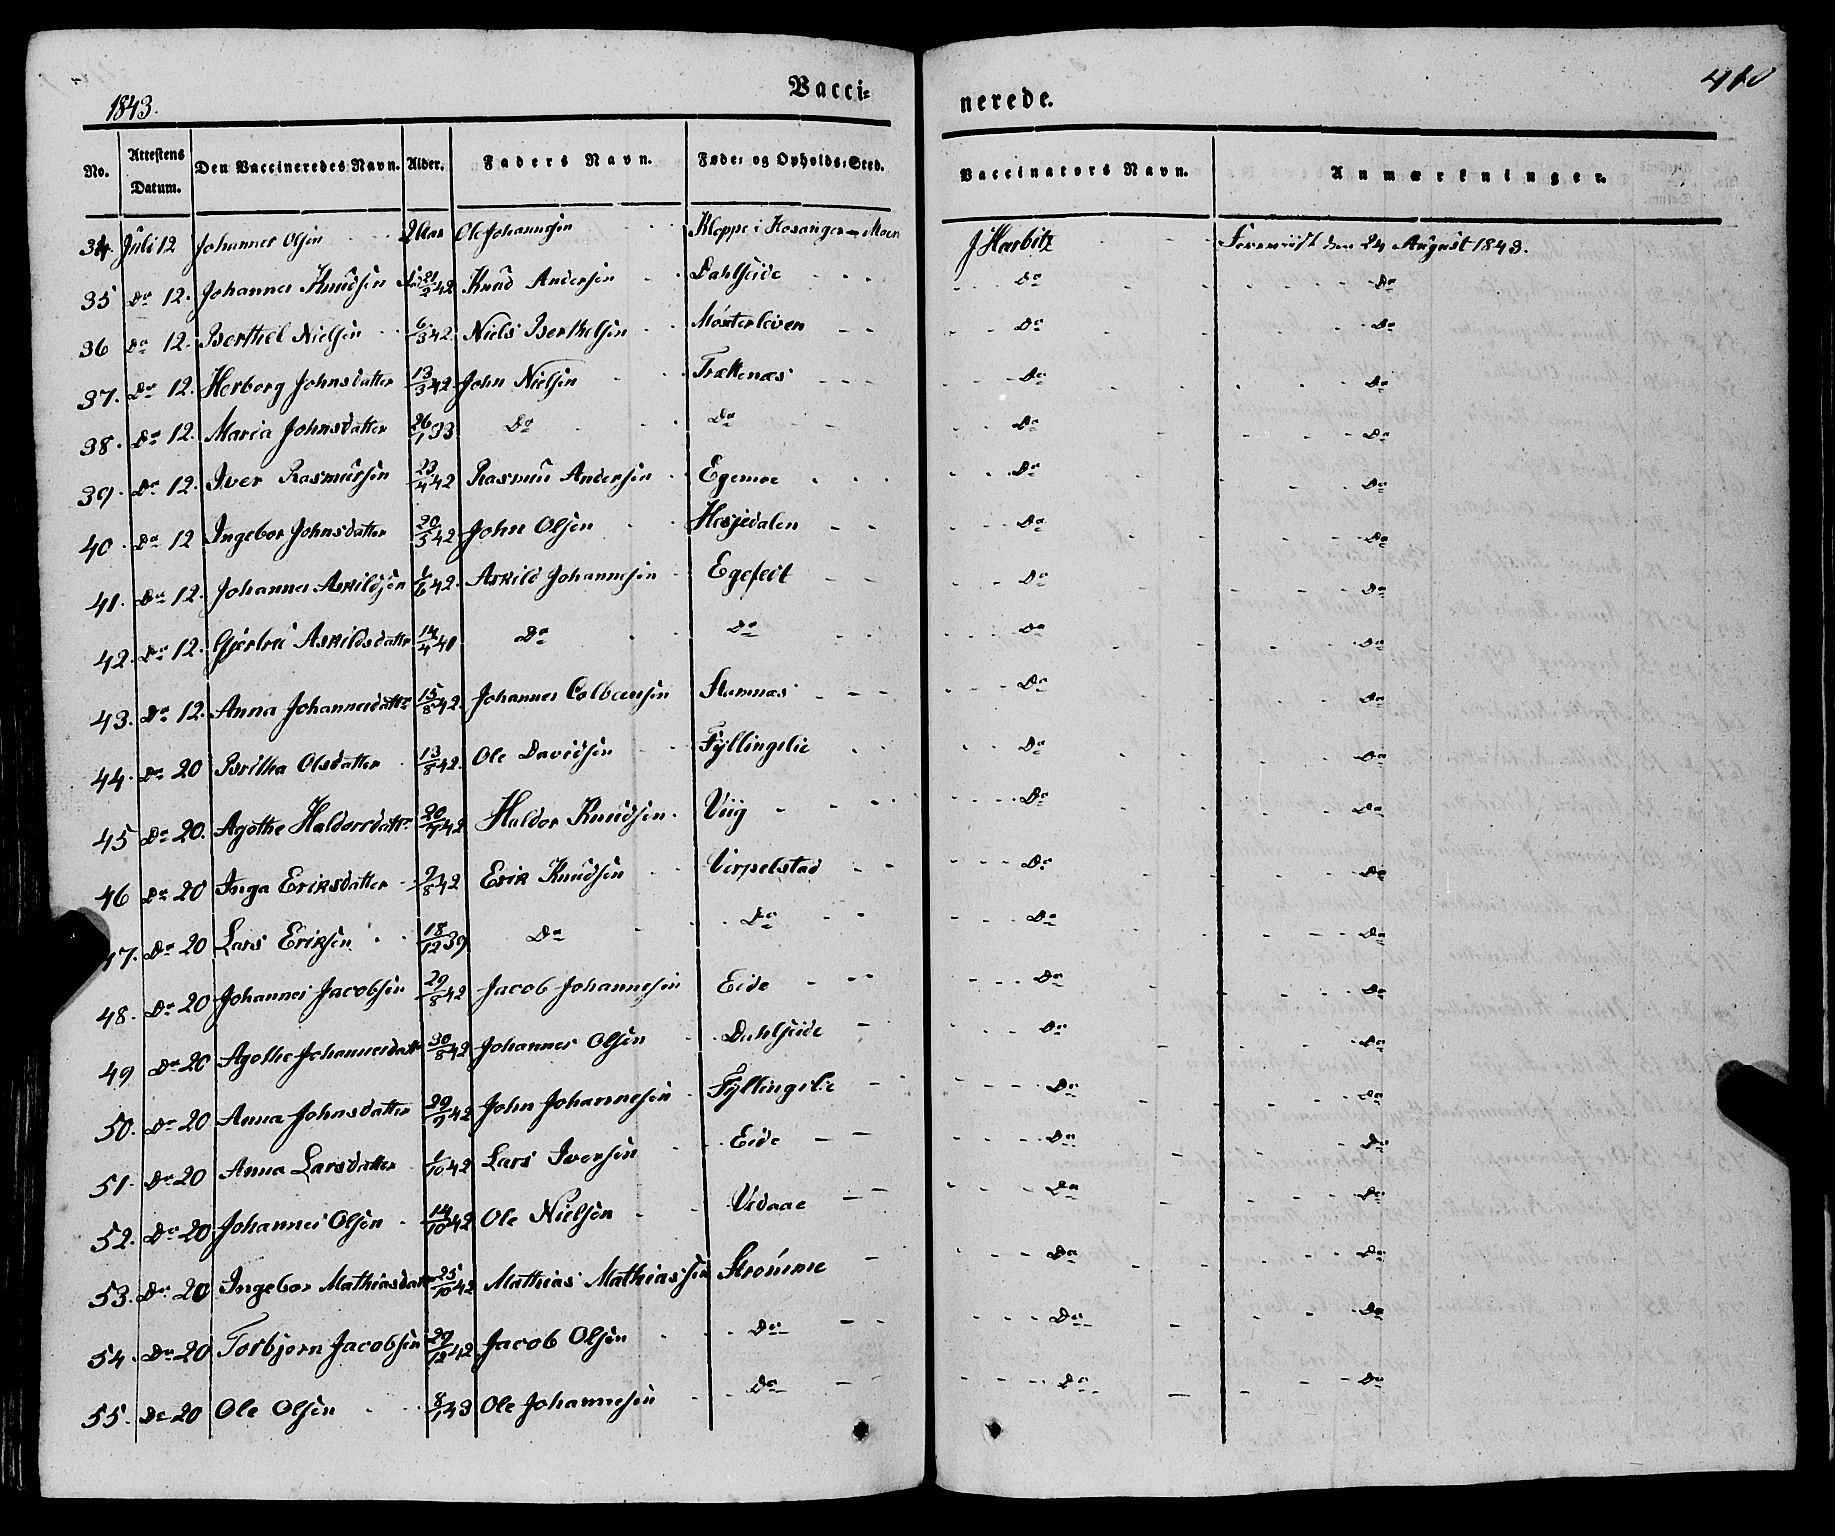 1843.
Vacci-
nerede.
410
No. Attestens Datum. Den Vaccineredes Navn. Alder. Faders Navn. Føde- og Opholds-Sted. Vaccinators Navn. Anmærkninger.
34 Juli 12 Johannes Olsen 2 Aar Ole Johannesen Kleppe i Hosanger - Moen J Harbitz Foreviist den 24 August 1843.
35 Do 12. Johannes Knudsen 21/2 42 Knud Andersen Dahlseide Do Do
36 Do 12. Berthel Nielsen 6/3 42. Niels Berthelsen Mosterleven Do Do
37. Do 12. Herborg Johnsdatter 13/3 42. John Nielsen Trættenæs Do Do
38. Do 12. Maria Johnsdatter 26/1 33 Do Do Do Do
39. Do 12. Iver Rasmussen 23/4 42 Rasmus Andersen Egemoe Do Do
40. Do 12 Ingebor Johnsdatter 20/5 42 John Olsen Hesjedalen Do Do
41. Do 12. Johannes Askildsen 1/6 42. Askild Johannesen Egeseit Do Do
42. Do 12. Gjertru Askildsdatter 14/4 40 Do Do Do Do
43. Do 12. Anna Johannesdattr 15/8 42. Johannes Colbensen Stamnæs Do Do
44. Do 20 Britha Olsdatter 13/8 42. Ole Davidsen Fyllingslie Do Do
45 Do 20. Agothe Haldorsdattr 20/7 42 Haldor Knudsen. Viig Do Do
46 Do 20 Inga Eriksdatter 9/8 42 Erik Knudsen Virpelstad Do Do
47. Do 20 Lars Eriksen 18/12 39 Do Do Do Do
48. Do 20 Johannes Jacobsen 29/8 42 Jacob Johannesen Eide Do Do
49 Do 20 Agothe Johannesdatt 30/8 42 Johannes Olsen Dahlseide Do Do
50. Do 20 Anna Johnsdatter 29/9 42 John Johannesen Fyllingslie Do Do
51. Do 20 Anna Larsdatter 1/10 42 Lars Iversen Eide Do Do
52. Do 20 Johannes Olsen 14/10 42 Ole Nielsen Vedaae Do Do
53. Do 20 Ingebor Mathiasdatter 25/10 42 Mathias Mathiassen Strømme Do Do
54. Do 20 Torbjørn Jacobsen 29/12 42 Jacob Olsen Do Do Do
55. Do 20 Ole Olsen 8/1 43 Ole Johannesen Do Do Do